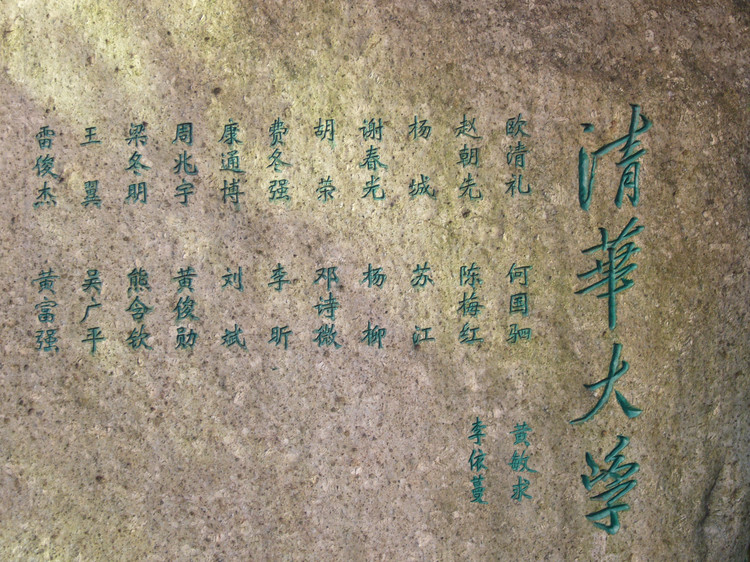 清華大学
欧清礼 何国驷 黄敏求
赵朝先 陈梅红 李依蔓
杨城 苏江
谢春光 杨柳
胡荣 邓诗微
费冬强 李昕
康通博 刘斌
周兆宇 黄俊勋
梁冬明 熊含钦
王翼 吴广平
雷俊杰 黄富强